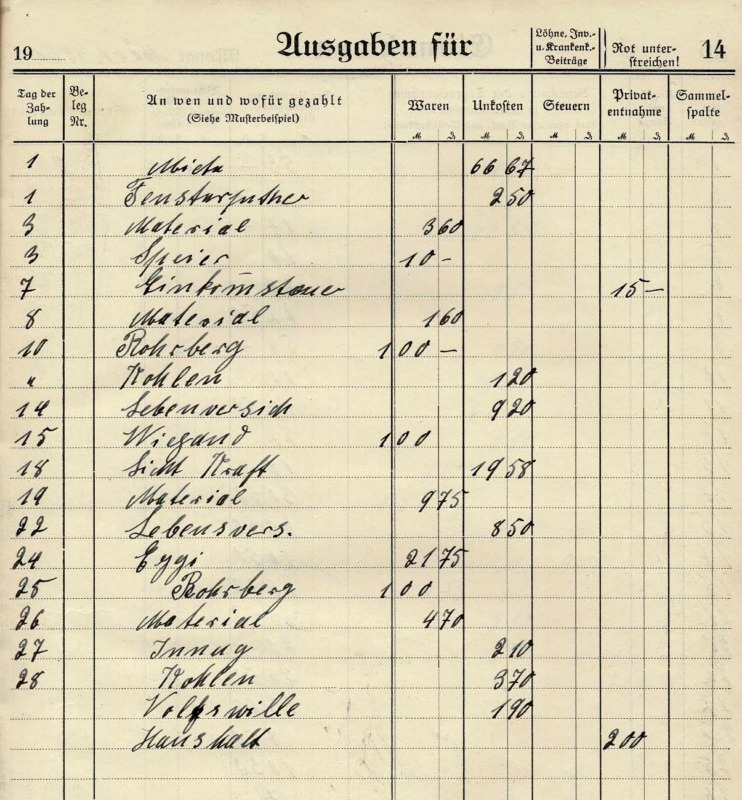 19 Ausgaben für Löhne, Inv.- u. Krankenk.- Beiträge Rot unterstreichen! 14
Tag der Zahlung Beleg Nr. An wen und wofür gezahlt (Siehe Musterbeispiel) Waren Unkosten Steuern Privatentnahme Sammelspalte
M ₰ M ₰ M ₰ M ₰ M ₰
1 Miete 66 67
1 Fensterputzer 2 50
3 Material 3 60
3 Speier 10 -
7 Einkomstauer 15 —
8 Material 1 60
10 Rohrberg 100 —
" Kohlen 1 20
14 Lebenversich 9 20
15 Wiegand 100
18 Licht Kraft 19 58
19 Material 9 75
22 Lebensvers. 8 50
24 Eggi 21 75
25 Rohrberg 100
26 Material 4 70
27 Innug 2 10
28 Kohlen 3 70
Volkswille 1 90
Haushalt 200